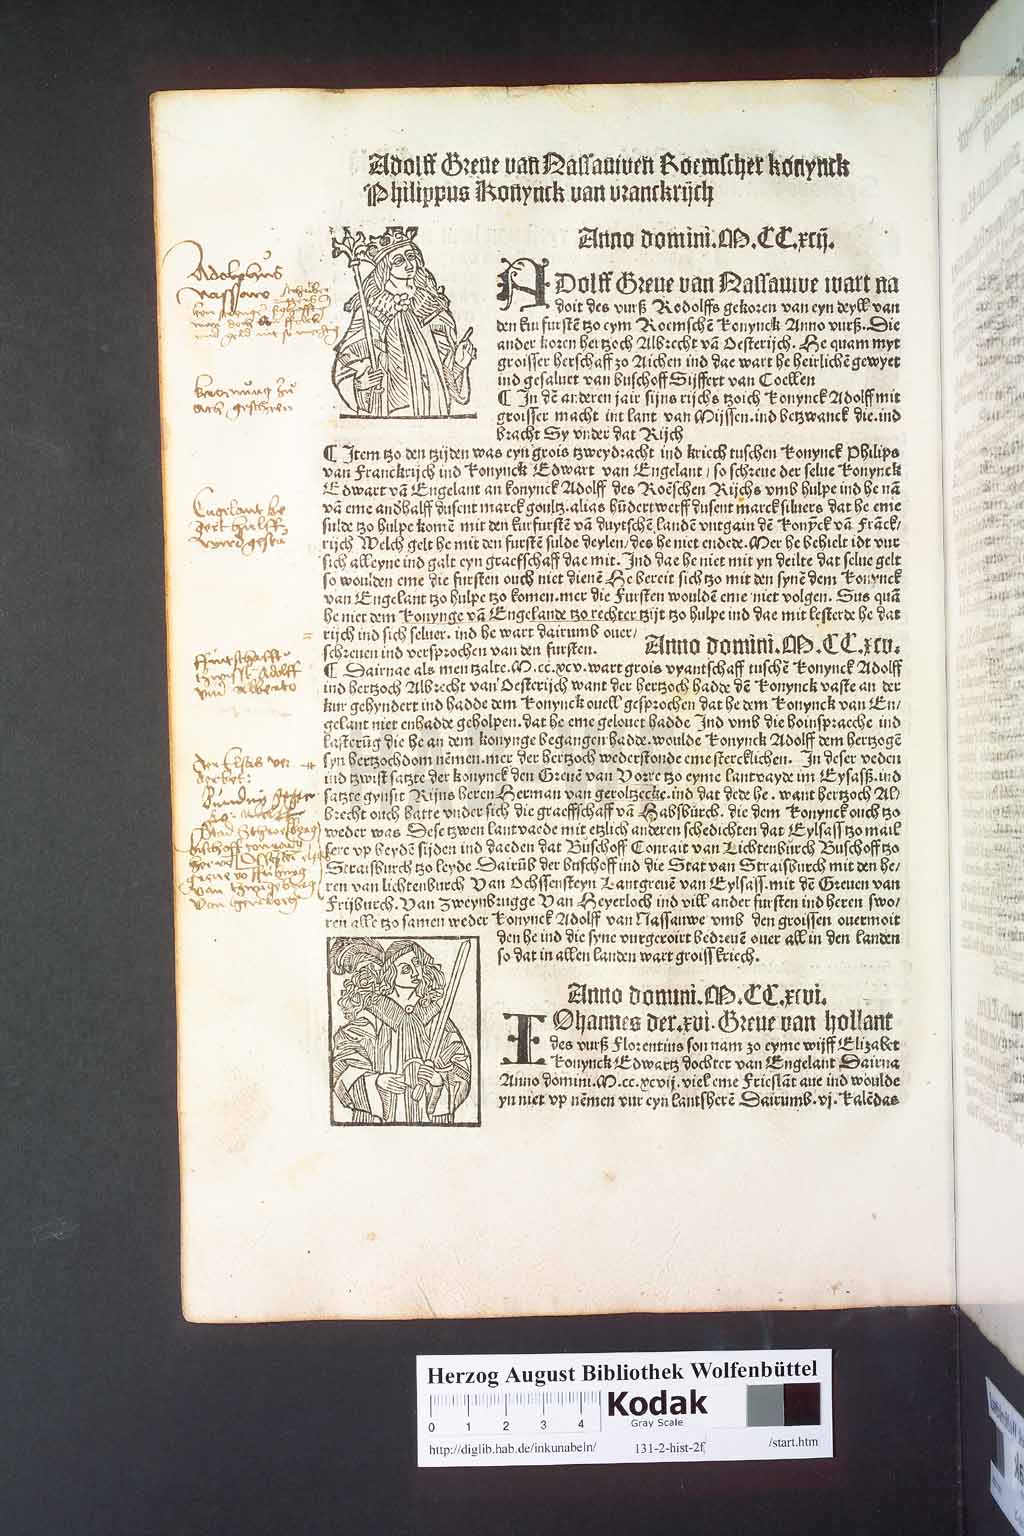 Adolff Greue van Nassauwen Roemscher konynck
Philippus Konynck van vranckrijch
Anno domini.M.CC.xcij.
ADolff Greue van Nassauwe wart na
doit des vurß Rodolffs gekoren van eyn deyll van
den kurfurstē tzo eym Roemschē konynck Anno vurß. Die
ander koren hertzoch Albrecht vā Oesterijch. He quam myt
groisser herschaff zo Aichen ind dae wart he heirlichē gewyet
ind gesaluet van buschoff Sijffert van Coellen
¶ In dē anderen jair sijns rijchs tzoich konynck Adolff mit
groisser macht int lant van Mijssen.ind betzwanck die.ind
bracht Sy vnder dat Rijch
¶ Item tzo den tzijden was eyn grois tzweydracht ind kriech tuschen konynck Philips
van Franckrijch ind konynck Edwart van Engelant/ so schreue der selue konynck
Edwart vā Engelant an konynck Adolff des Roēschen Rijchs vmb hulpe ind he nā
vā eme andhalff dusent marck goultz.alias hūdertwerff dusent marck siluers dat he eme
sulde tzo hulpe komē mit den kurfurstē vā duytschē landē vntgain dē konyck vā Franck/
rijch Welch gelt he mit den furstē sulde deylen/des he niet endede.Mer he behielt idt vur
sich alleyne ind galt eyn graefschaff dae mit. Ind dae he niet mit yn deilte dat selue gelt
so woulden eme die fursten ouch niet dienē He bereit sich tzo mit den synē dem konynck
van Engelant tzo hulpe tzo komen.mer die Fursten wouldē eme niet volgen. Sus quā
he niet dem konynge vā Engelande tzo rechter tzijt tzo hulpe ind dae mit lesterde he dat
rijch ind sich seluer. ind he wart dairumb ouer/
schreuen ind versprochen van den fursten.
Anno domini.M.CC.xcv.
¶ Dairnae als men tzalte.M.cc.xcv.wart grois vyantschaff tuschē konynck Adolff
ind hertzoch Albrecht van Oesterijch want der hertzoch hadde dē konynck vaste an der
kur gehyndert ind hadde dem konynck ouell gesprochen dat he dem konynck van En/
gelant niet enhadde geholpen.dat he eme gelouet hadde Ind vmb die boinspraeche ind
lasterūg die he an dem konynge begangen hadde.woulde konynck Adolff dem hertzogē
syn hertzochdom nēmen.mer der hertzoch wederstonde eme stercklichen. In deser veden
ind twist satzte der konynck den Greuē van Vorre tzo eyme lantvayde im Eysaß.ind
satzte gynsit Rijns heren Herman van geroltzecke.ind dat dede he. want hertzoch Al/
brecht ouch hatte vnder sich die graeffschaff vā Habsburch. die dem konynck ouch tzo
weder was Dese tzwen lantvaede mit etzlich anderen schedichten dat Eylsass tzo mail
sere vp beydē sijden ind daeden dat Buschoff Conrait van Lichtenburch Buschoff tzo
Straisburch tzo leyde Dairūb der buschoff ind die Stat van Straisburch mit den he/
ren van lichtenburch Van Ochssensteyn Lantgreuē van Eylsass.mit dē Greuen van
Frijburch. Van Zweynbrugge Van Heyerloch ind vill ander fursten ind heren swo/
ren alle tzo samen weder konynck Adolff van Nassauwe vmb den groissen ouermoit
den he ind die syne vurgeroirt bedreuē ouer all in den landen
so dat in allen landen wart groiss kriech.
Anno domini.M.CC.xcvi.
IOhannes der.xvi.Greue van hollant
des vurß Florentius son nam zo eyme wijff Elizabet
konynck Edwartz dochter van Engelant Dairna
Anno domini.M.cc.xcvij.viel eme Frieslāt aue ind woulde
yn niet vp nēmen vur eyn lantsherē Dairumb.vj.kalēdas
Adolphus
nassaw
kronung zu
ach geschehen
Engelant be
gert hulff
Adolff
vnd Alberto
Herzog August Bibliothek Wolfenbüttel
Kodak
Gray Scale
0 1 2 3 4
http://diglib.hab.de/inkunabeln/ 131-2-hist-2f /start.htm